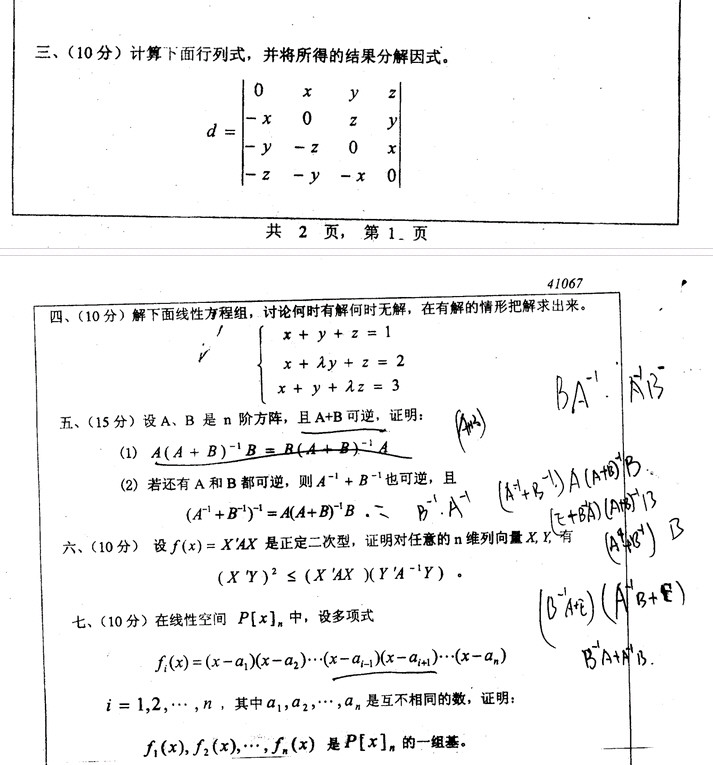 三、（10分）计算下面行列式，并将所得的结果分解因式。
d = | 0 x y z |
| -x 0 z y |
| -y -z 0 x |
| -z -y -x 0 |
共 2 页， 第 1 页
41067
四、（10分）解下面线性方程组，讨论何时有解何时无解，在有解的情形把解求出来。
x + y + z = 1
x + λy + z = 2
x + y + λz = 3
BA⁻¹. A⁻¹B⁻
五、（15分）设 A、B 是 n 阶方阵，且 A+B 可逆，证明：
(A+B)
(1) A(A + B)⁻¹B = B(A + B)⁻¹A
(2) 若还有 A 和 B 都可逆，则 A⁻¹ + B⁻¹ 也可逆，且
(A⁻¹+B⁻¹)⁻¹ = A(A+B)⁻¹B .
B⁻¹.A⁻¹
(A⁻¹+B⁻¹)A(A+B)⁻¹B.
(E+B⁻¹A)(A+B)⁻¹B
六、（10分） 设 f(x) = X'AX 是正定二次型，证明对任意的 n 维列向量 X, Y, 有
B
(X'Y)² ≤ (X'AX)(Y'A⁻¹Y) 。
(B⁻¹A+E)(A⁻¹B+E)
B⁻¹A+A⁻¹B.
七、（10分）在线性空间 P[x]ₙ 中，设多项式
fᵢ(x) = (x−a₁)(x−a₂)⋯(x−aᵢ₋₁)(x−aᵢ₊₁)⋯(x−aₙ)
i = 1,2,⋯,n ，其中 a₁,a₂,⋯,aₙ 是互不相同的数，证明：
f₁(x), f₂(x),⋯, fₙ(x) 是 P[x]ₙ 的一组基。